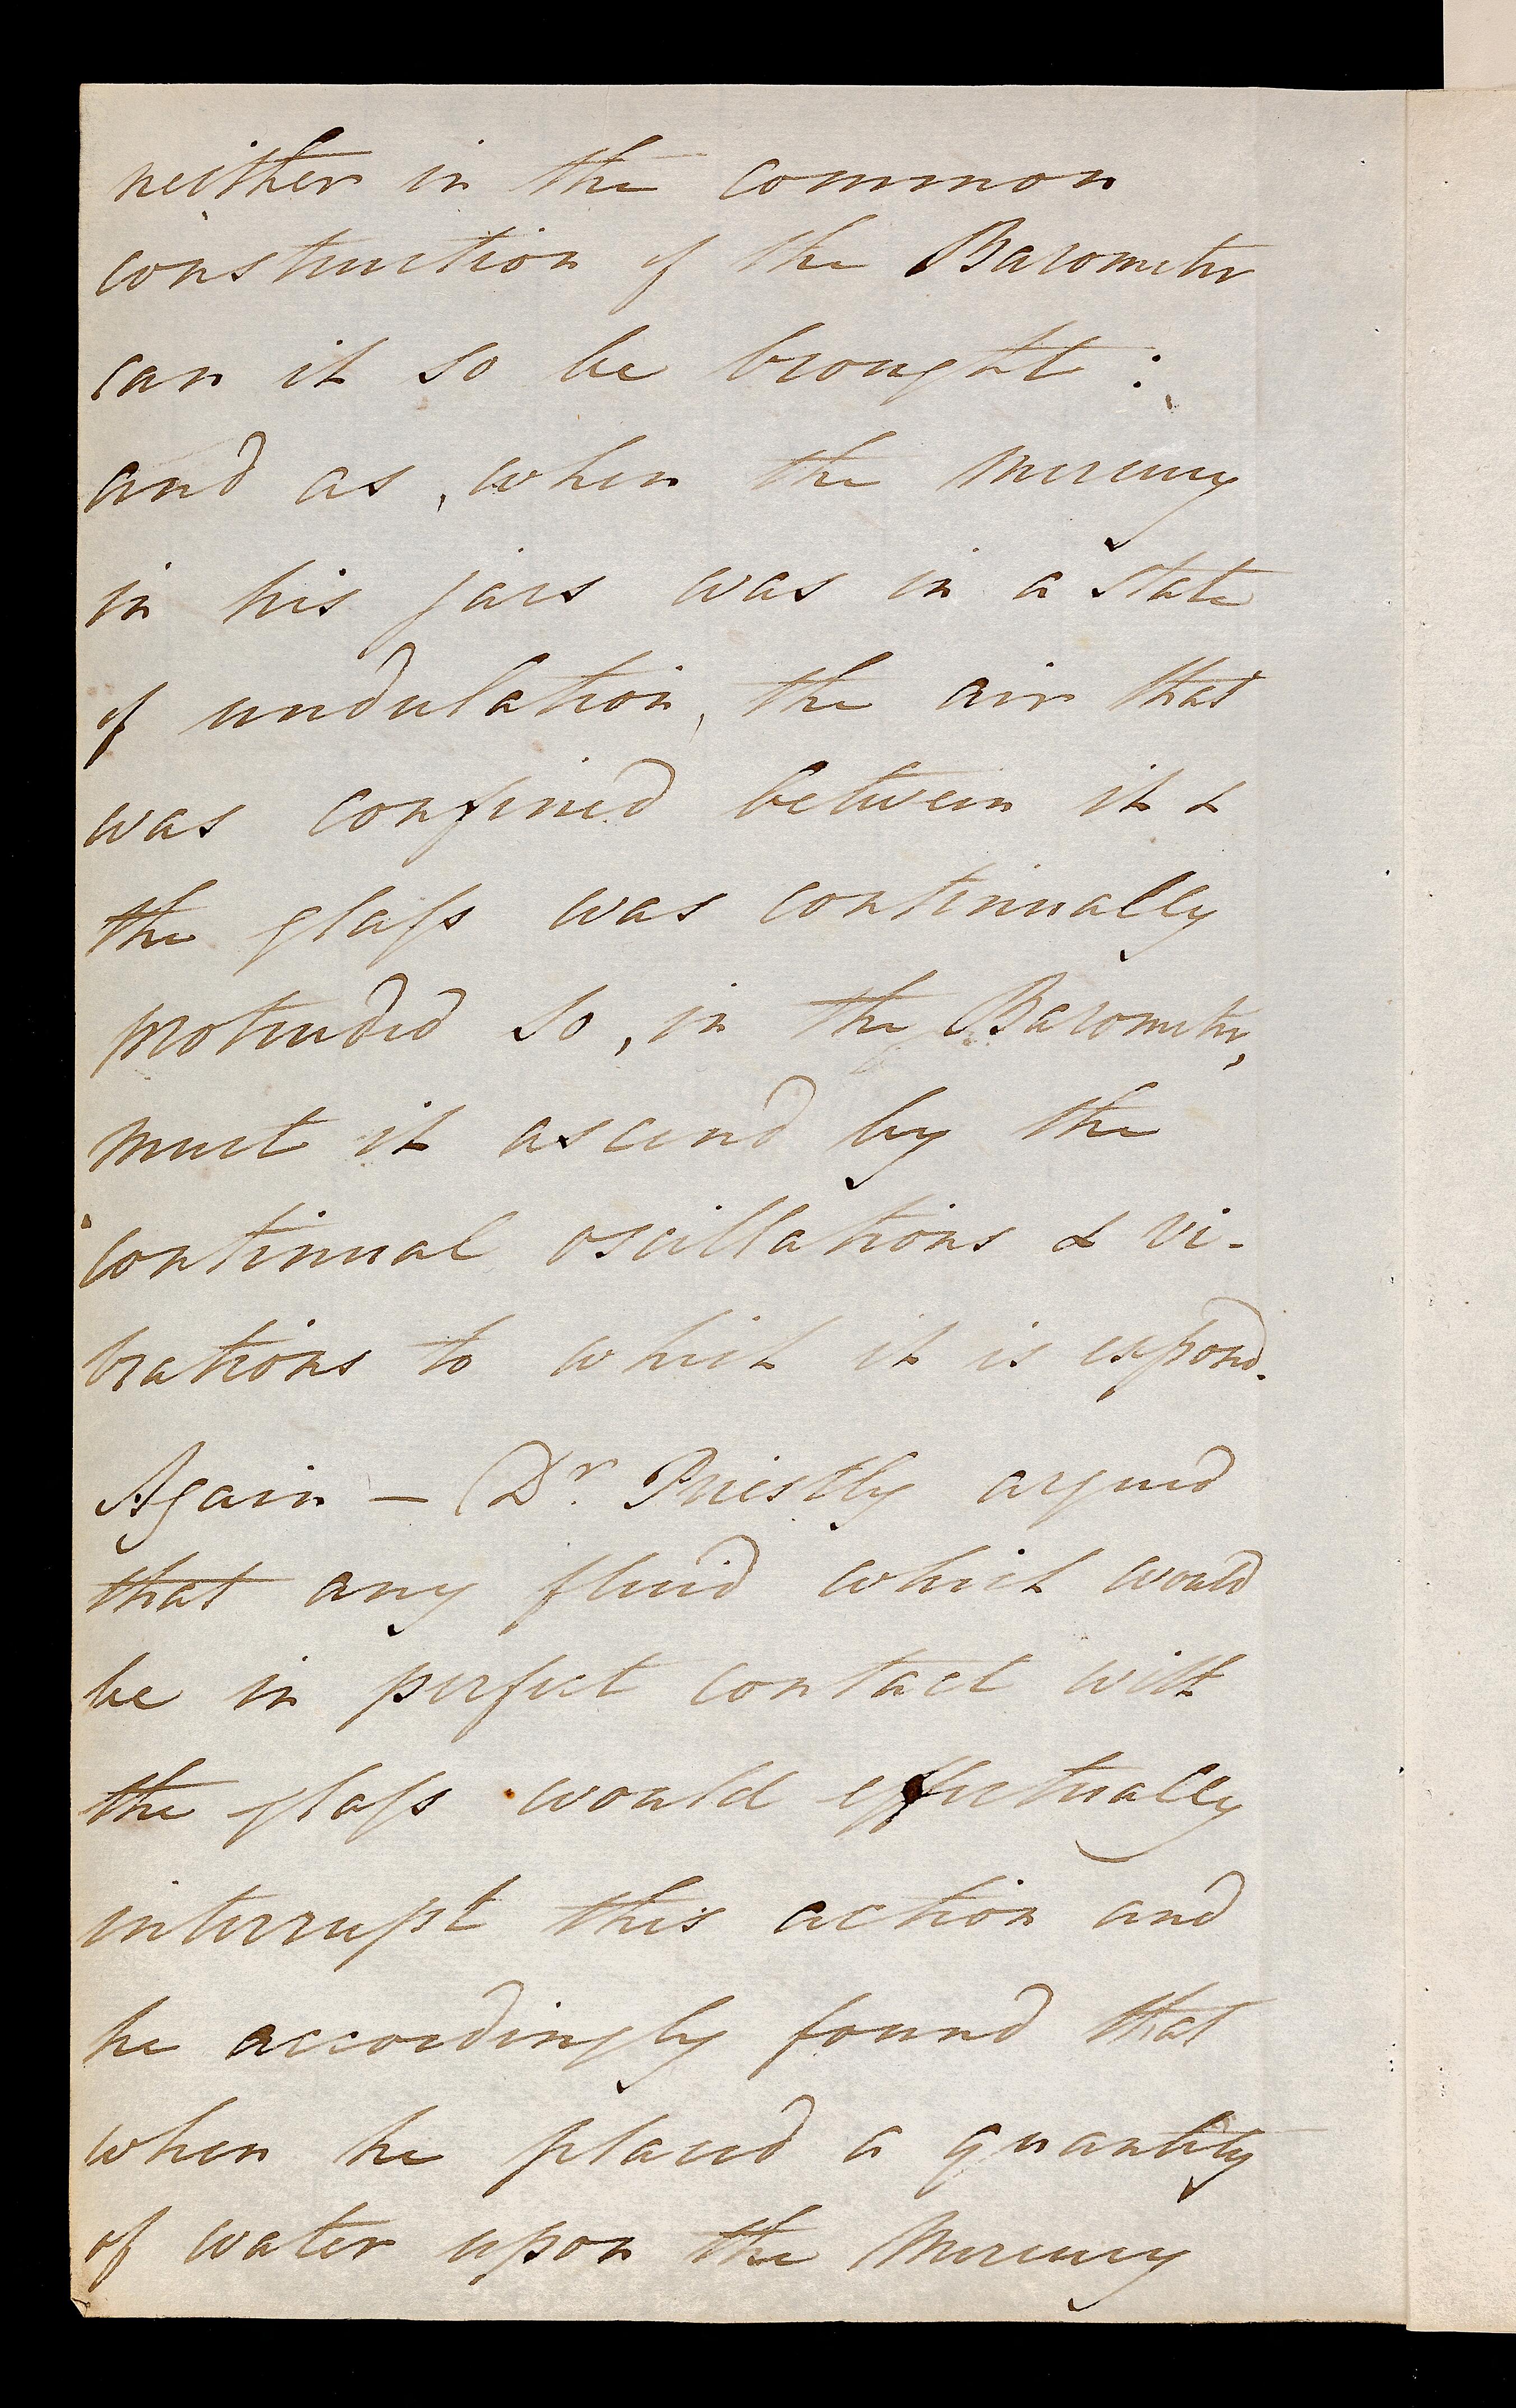 neither in the common
construction of the Barometer
can it so be brought :
and as, when the Mercury
in his jars was in a state
of undulation, the air that
was confined between it &
the glaſs was continually
protruded so, in the Barometer,
must it ascend by the
continual oscillations & vi-
brations to which it is exposed.
Again — Dr. Priestly argued
that any fluid which would
be in perfect contact with
the glaſs would effectually
interrupt this action and
he accordingly found that
when he placed a quantity
of water upon the Mercury